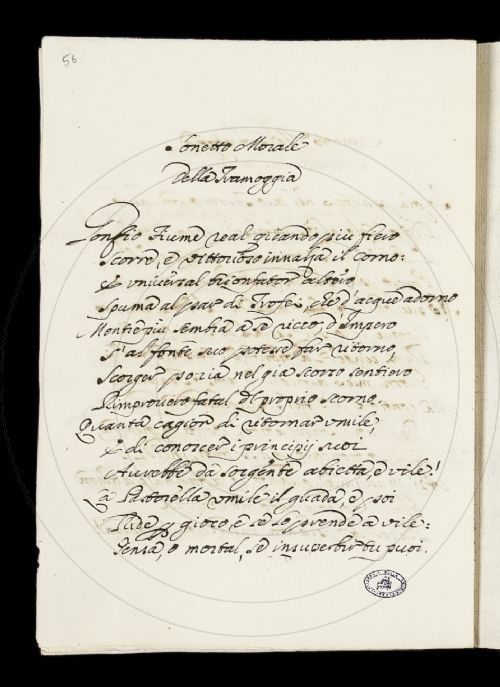 56
Sonetto Morale
Della Ramoggia
Gonfio Fiume real quando più fiero
Scorre, e vittorioso innalza il corno:
E universal trionfator altero
Spuma al par di Trofei, che d'acque adorno
Mentre più sembra a sé ricco d'Impero
S'al fonte suo potesse far ritorno,
Scorger poria nel già scorso sentiero
Rimprovero fatal di proprio scorno.
Quanta cagion di ritornar umile,
E di conoscer i principij suoi
Avrebbe da sorgente abietta, e vile!
La Pastorella umile il guada, e poi
Ride gioco, e se lo prende a vile:
Pensa, o mortal, se insuperbir tu puoi.